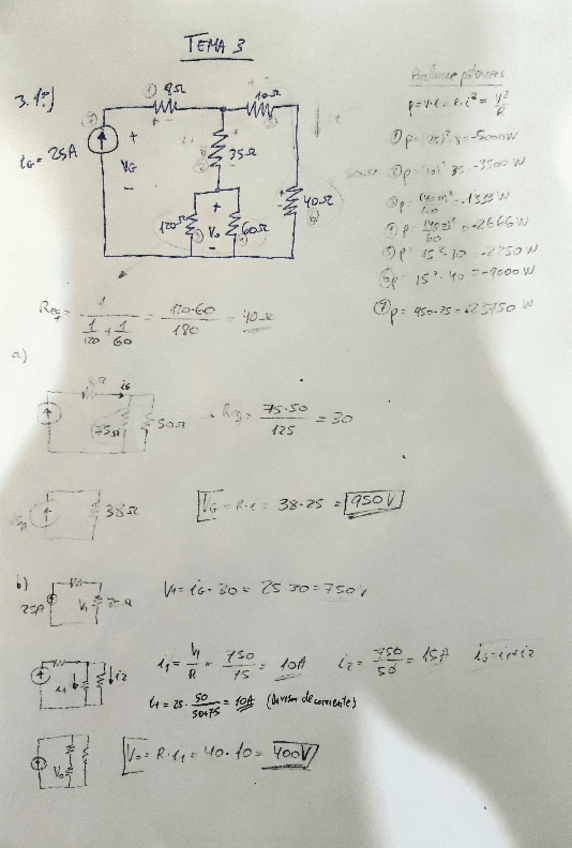 TEMA 3
3.1º)
① 8Ω
10Ω
iG = 25A
+
VG
-
35Ω
120Ω
+
Vo
-
60Ω
40Ω
Balance potencias
p = v·i = R·i² = V²/R
① p = (25)²·8 = -5000W
② p = (10)²·35 = -3500 W
③ p = (400)²/120 = -1333 W
④ p = (400)²/60 = -2666 W
⑤ p = 15²·10 = -2250 W
⑥ p = 15²·40 = -9000 W
⑦ p = 950·25 = 23750 W
Req = 1/(1/120 + 1/60) = 120·60/180 = 40Ω
a)
8Ω iG
75Ω 50Ω
Req = 75·50/125 = 30
38Ω
VG = R·i = 38·25 = 950V
b)
25A V1
V1 = iG·30 = 25·30 = 750V
i1 i2
i1 = V1/R = 750/75 = 10A i2 = 750/50 = 15A iG = i1+i2
i1 = 25·50/(50+75) = 10A (Divisor de corriente)
Vo
Vo = R·i1 = 40·10 = 400V